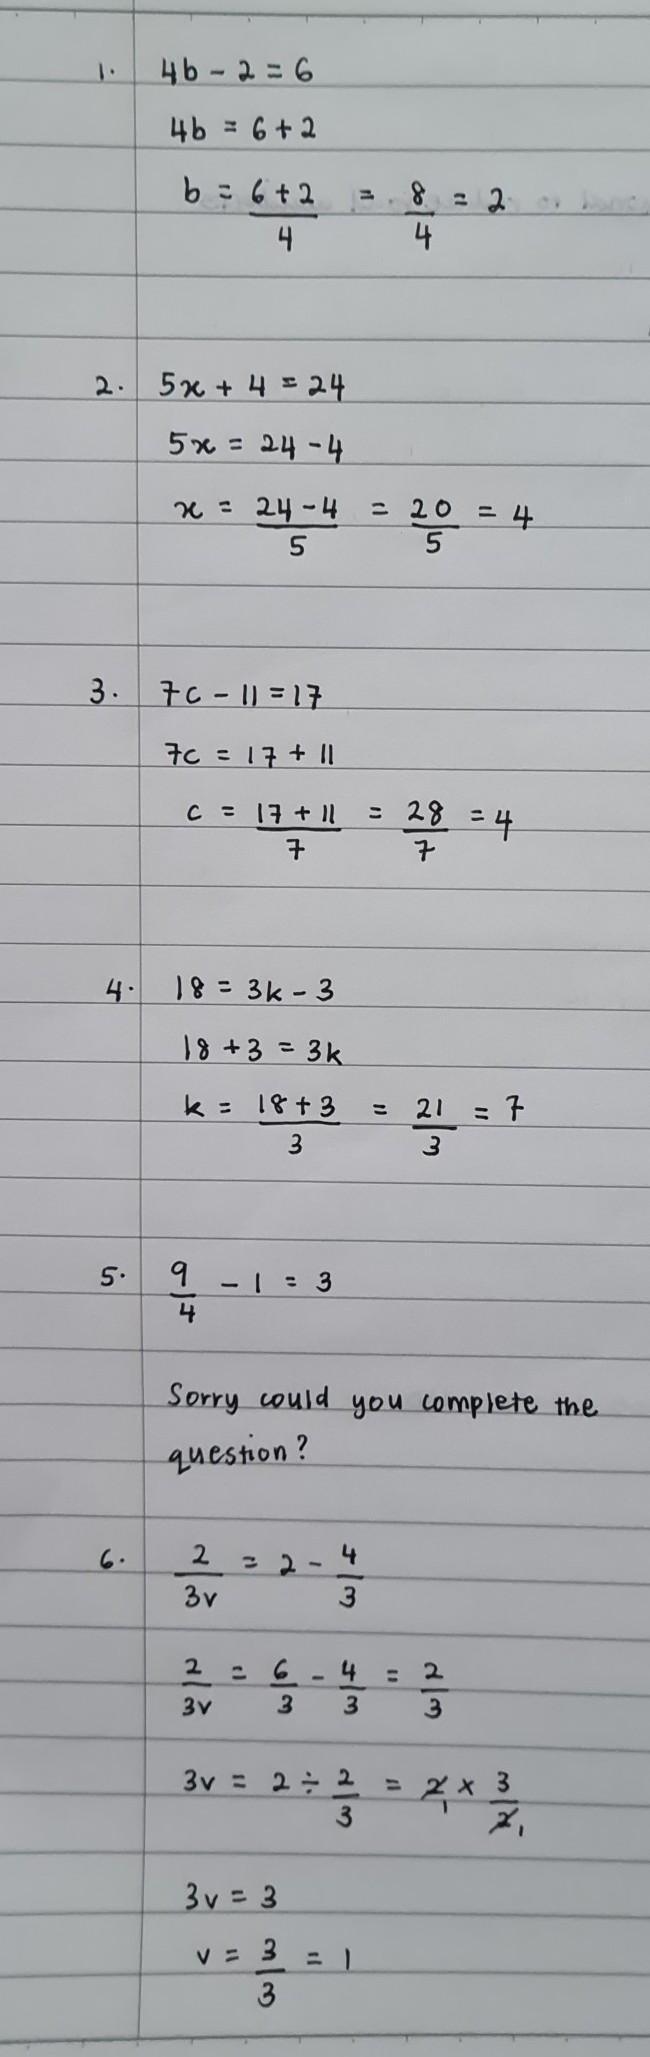 1. 4b - 2 = 6
4b = 6 + 2
b = 6 + 2 / 4 = 8 / 4 = 2
2. 5x + 4 = 24
5x = 24 - 4
x = 24 - 4 / 5 = 20 / 5 = 4
3. 7c - 11 = 17
7c = 17 + 11
c = 17 + 11 / 7 = 28 / 7 = 4
4. 18 = 3k - 3
18 + 3 = 3k
k = 18 + 3 / 3 = 21 / 3 = 7
5. 9 / 4 - 1 = 3
Sorry could you complete the
question?
6. 2 / 3v = 2 - 4 / 3
2 / 3v = 6 / 3 - 4 / 3 = 2 / 3
3v = 2 ÷ 2 / 3 = 2 1 × 3 / 2 1
3v = 3
v = 3 / 3 = 1